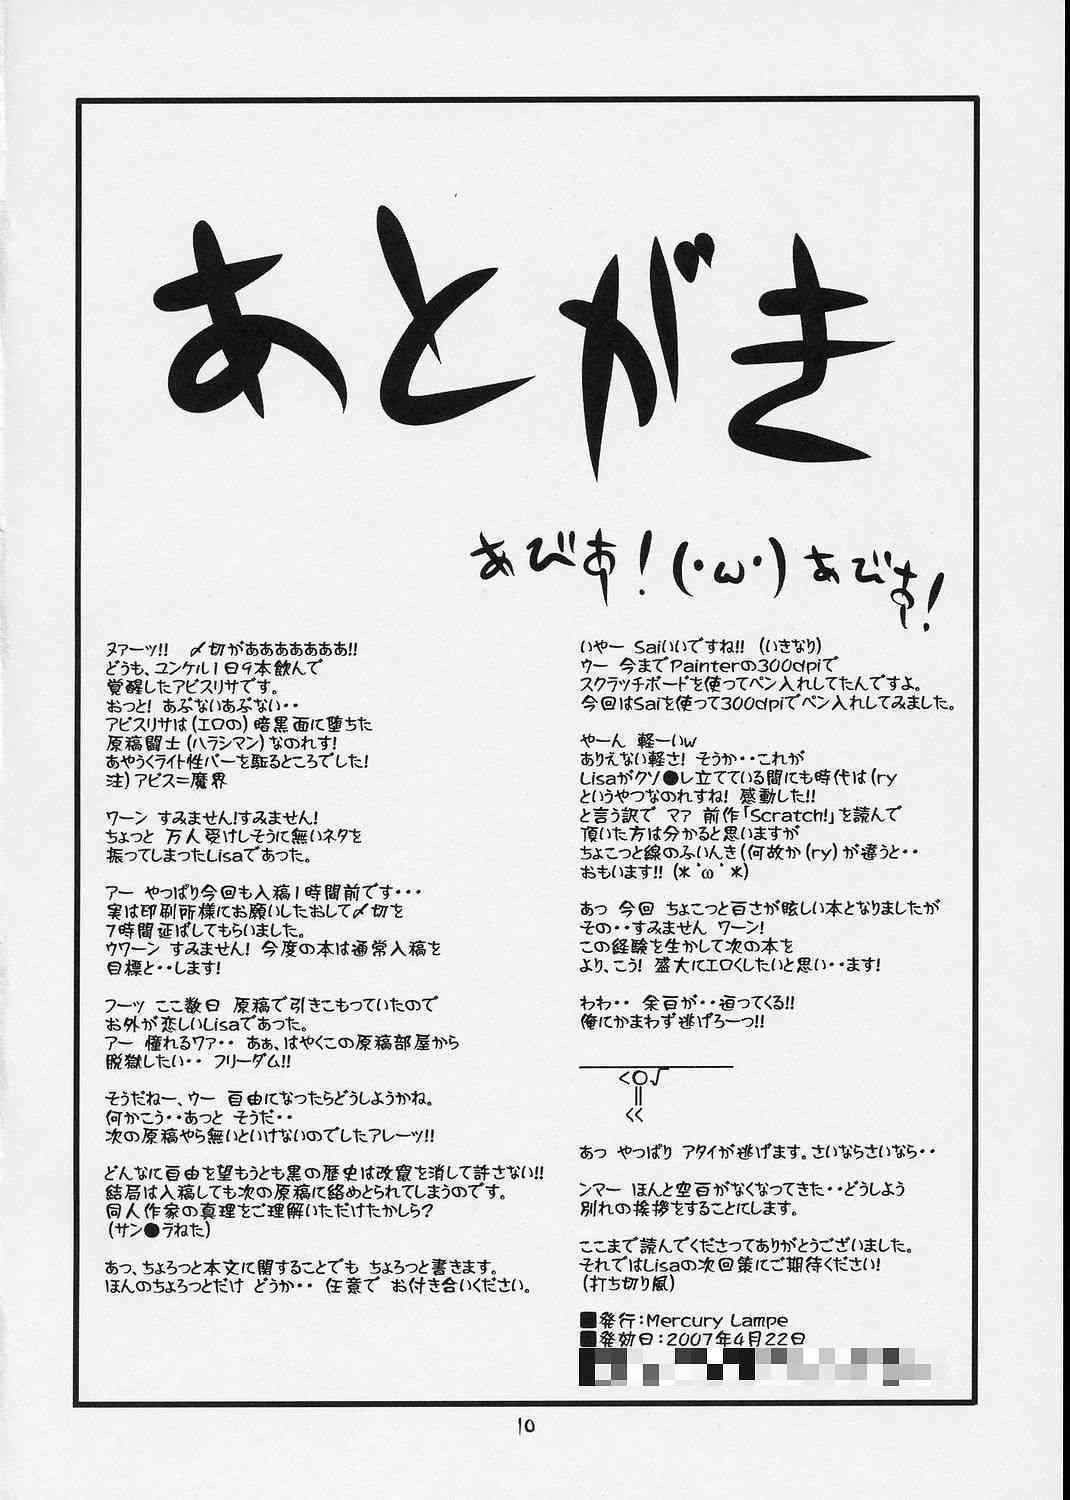 あとがき
あびす!(・ω・)あびす!
ヌァーッ!!　〆切がああああああ!!
どうも、ユンケル1日9本飲んで
覚醒したアビスリサです。
おっと! あぶないあぶない・・
アビスリサは(エロの)暗黒面に堕ちた
原稿闘士(ハラシマン)なのれす!
あやうくライト性バーを駈るところでした!
注)アビス=魔界
ワーン すみません!すみません!
ちょっと 万人受けしそうに無いネタを
振ってしまったLisaであった。
アー やっぱり今回も入稿1時間前です・・・
実は印刷所様にお願いしたおして〆切を
7時間延ばしてもらいました。
ウワーン すみません! 今度の本は通常入稿を
目標と・・します!
フーッ ここ数日 原稿で引きこもっていたので
お外が恋しいLisaであった。
アー 憧れるワァ・・ あぁ、はやくこの原稿部屋から
脱獄したい・・ フリーダム!!
そうだねー、ウー 自由になったらどうしようかね。
何かこう・・あっと そうだ・・
次の原稿やら無いといけないのでしたアレーッ!!
どんなに自由を望もうとも黒の歴史は改竄を消して許さない!!
結局は入稿しても次の原稿に絡めとられてしまうのです。
同人作家の真理をご理解いただけたかしら?
(サン●ラねた)
あっ、ちょろっと本文に関することでも ちょろっと書きます。
ほんのちょろっとだけ どうか・・ 任意で お付き合いください。
いやー Saiいいですね!! (いきなり)
ウー 今までPainterの300dpiで
スクラッチボードを使ってペン入れしてたんですよ。
今回はSaiを使って300dpiでペン入れしてみました。
やーん 軽ーいw
ありえない軽さ! そうか・・これが
Lisaがクソ●レ立てている間にも時代は(ry
というやつなのれすね! 感動した!!
と言う訳で マァ 前作「Scratch!」を読んで
頂いた方は分かると思いますが
ちょこっと線のふいんき(何故か(ry)が違うと・・
おもいます!! (*´ω`*)
あっ 今回 ちょこっと白さが眩しい本となりましたが
その・・すみません ワーン!
この経験を生かして次の本を
より、こう! 盛大にエロくしたいと思い・・ます!
わわ・・ 余白が・・迫ってくる!!
俺にかまわず逃げろーっ!!
<○√
‖
<<
あっ やっぱり アタイが逃げます。さいならさいなら・・
ンマー ほんと空白がなくなってきた・・どうしよう
別れの挨拶をすることにします。
ここまで読んでくださってありがとうございました。
それではLisaの次回策にご期待ください!
(打ち切り風)
■発行:Mercury Lampe
■発効日:2007年4月22日
10